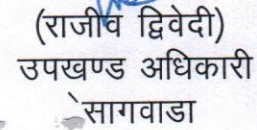 (राजीव द्विवेदी)
उपखण्ड अधिकारी
सागवाडा